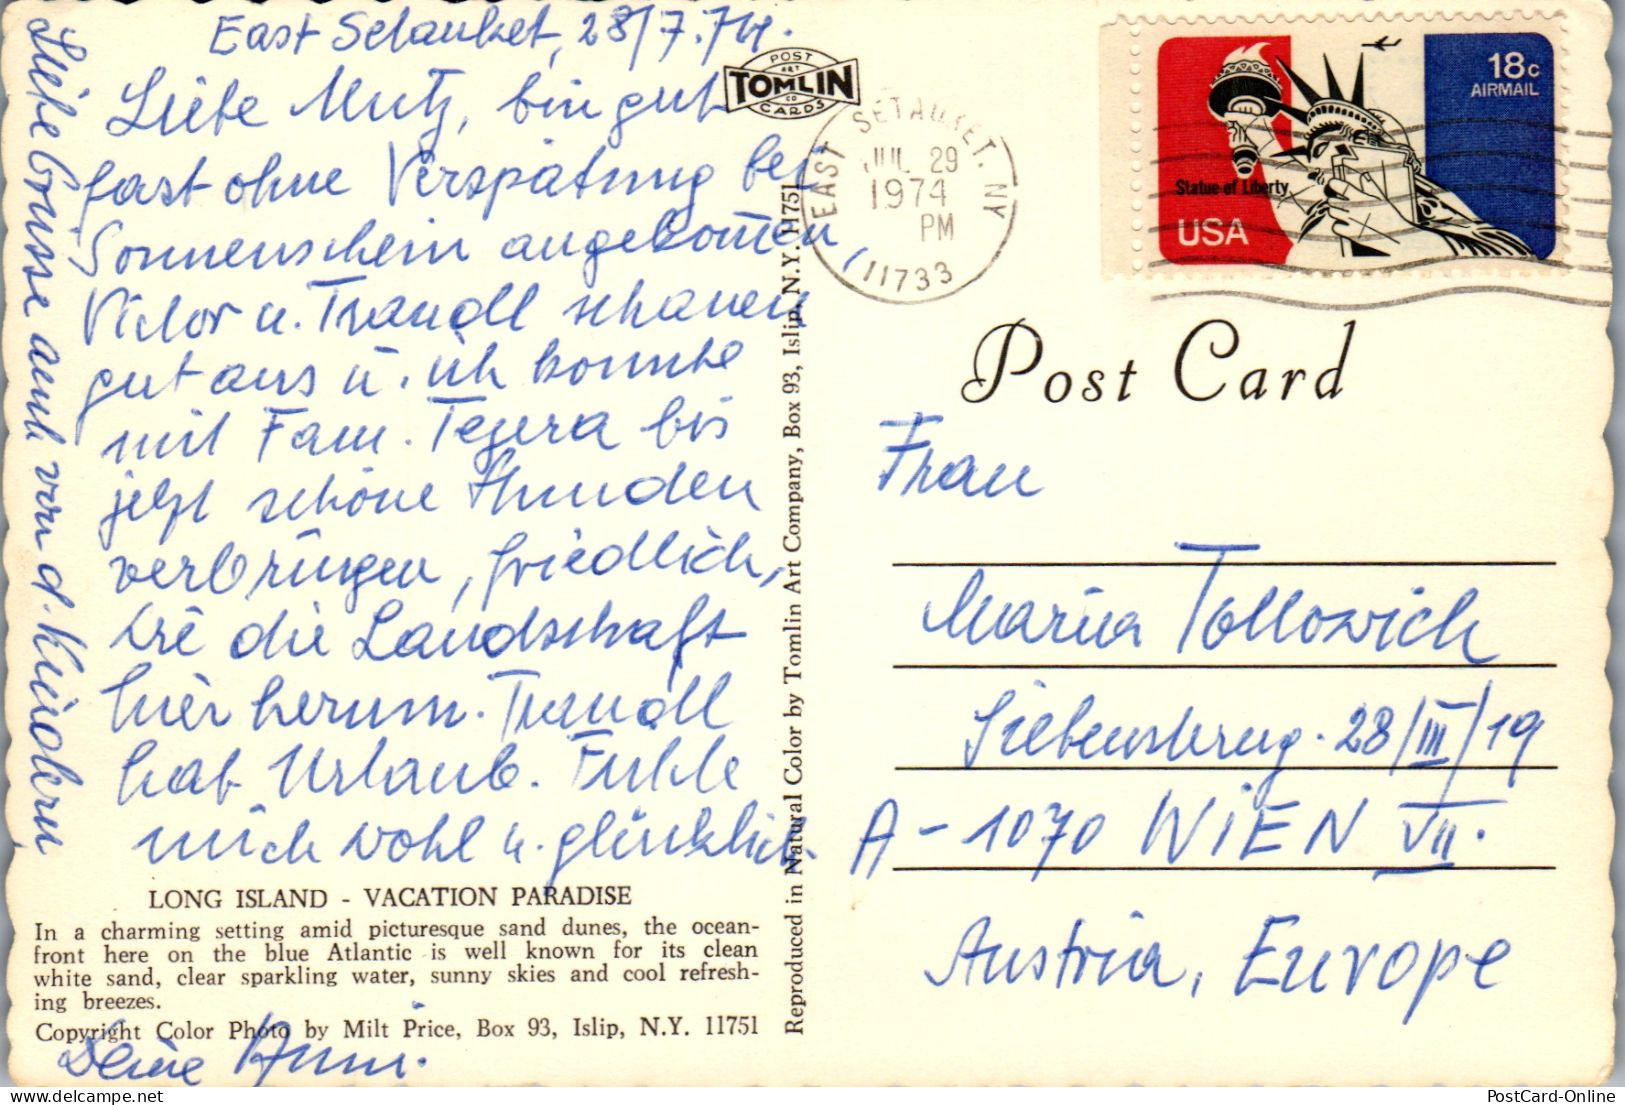 East Setauket, 28/7.74.
Liebe Mutz, bin gut
fast ohne Verspätung bei
Sonnenschein angekom̅en,
Victor u. Traudl schauen
gut aus u. ich konnte
mit Fam. Tegera bis
jetzt schöne Stunden
verbringen, friedlich,
wie die Landschaft
hier herum. Traudl
hat Urlaub. Fühle
mich wohl u. glücklich.
Deine Anni.
Liebe Grüsse auch von d. Kindern
LONG ISLAND - VACATION PARADISE
In a charming setting amid picturesque sand dunes, the ocean-
front here on the blue Atlantic is well known for its clean
white sand, clear sparkling water, sunny skies and cool refresh-
ing breezes.
Copyright Color Photo by Milt Price, Box 93, Islip, N.Y. 11751
POST
ART
TOMLIN
CO
CARDS
Reproduced in Natural Color by Tomlin Art Company, Box 93, Islip, N.Y. 11751
EAST SETAUKET, NY
JUL 29
1974
PM
11733
18c
AIRMAIL
Statue of Liberty
USA
Post Card
Frau
Maria Tollowich
Siebensterng. 28/III/19
A-1070 WIEN VII.
Austria, Europe
PostCard-Online